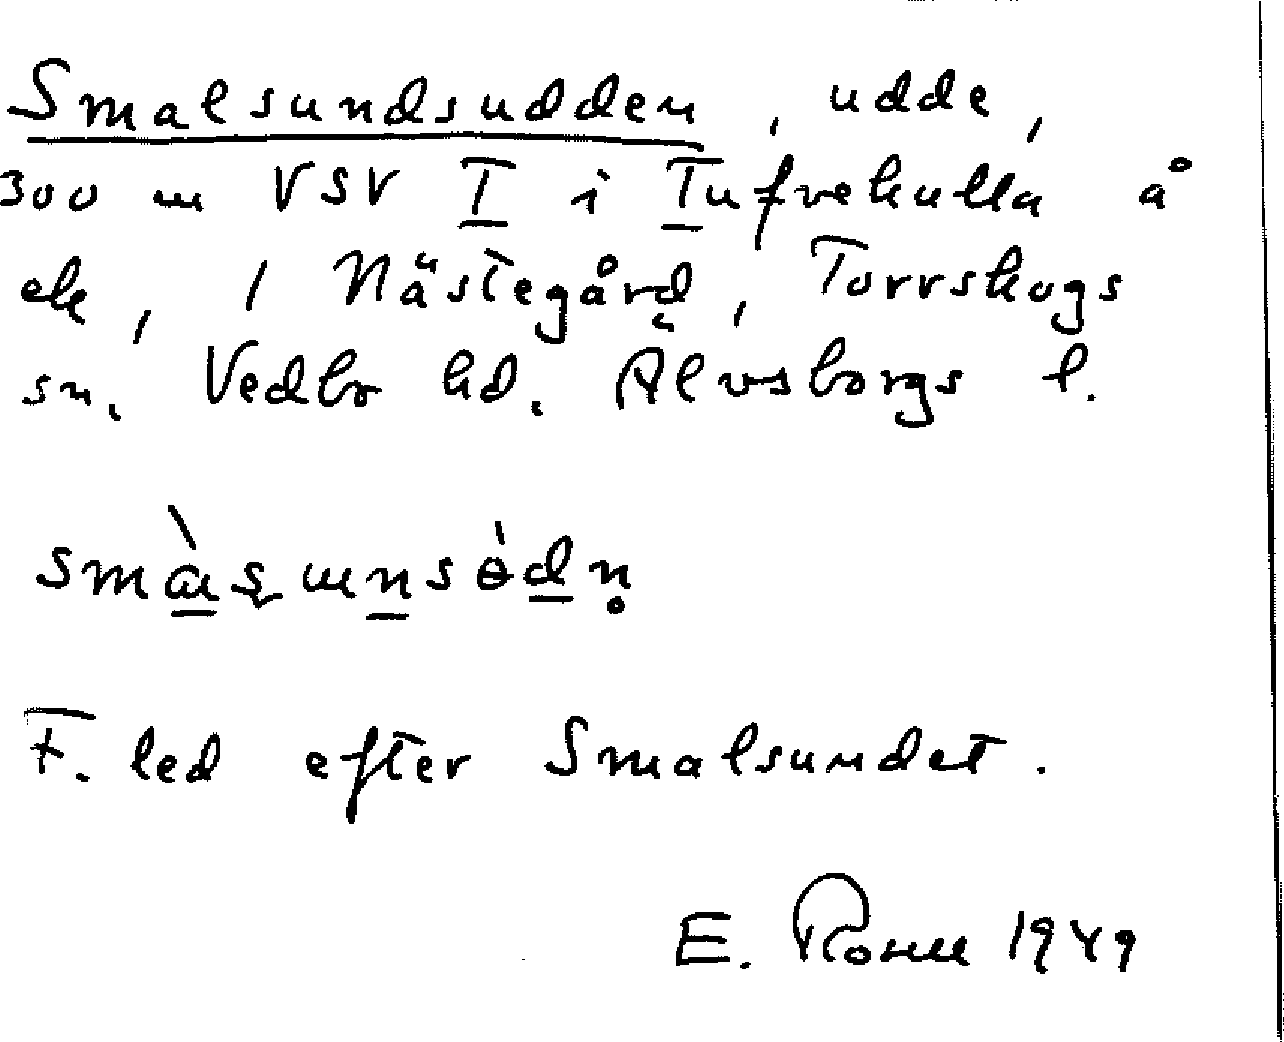 Smalsundsudden, udde,
300 m VSV T i Tufvekulla å
ek, 1 Nästegård, Torrskogs
sn. Vedbo hd. Älvsborgs l.
F. led efter Smalsundet.
E. 1949